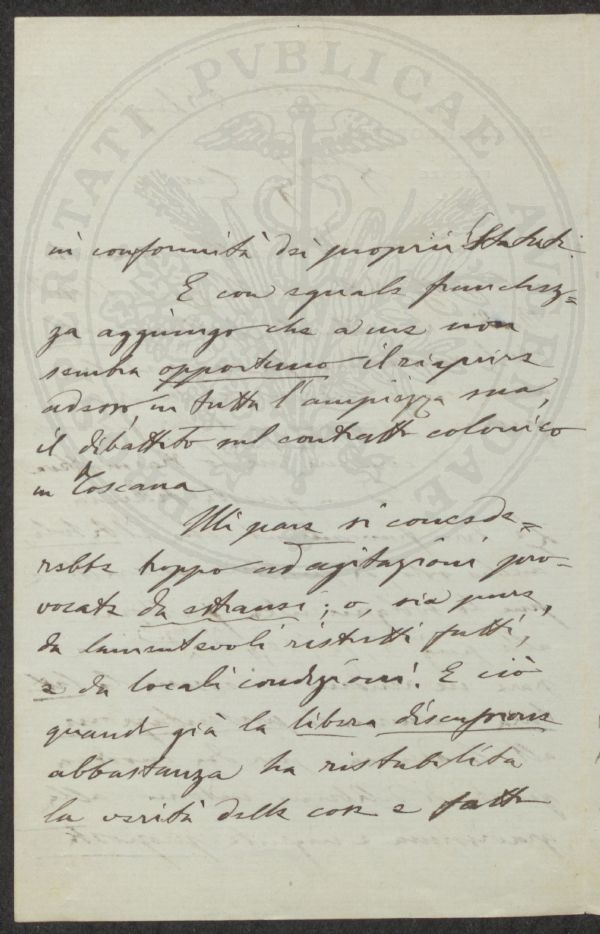 in conformità dei proprii Statuti.
E con eguale franchez=
za aggiungo che a me non
sembra opportuno il riaprire
adesso, in tutta l'ampiezza sua,
il dibattito sul contratto colonico
in Toscana
Mi pare si concede=
rebbe troppo ad agitazioni pro-
vocate da estranei; o, sia pure,
da lamentevoli ristretti fatti,
e da locali condizioni. E ciò
quando già la libera discussione
abbastanza ha ristabilita
la verità delle cose e fatto